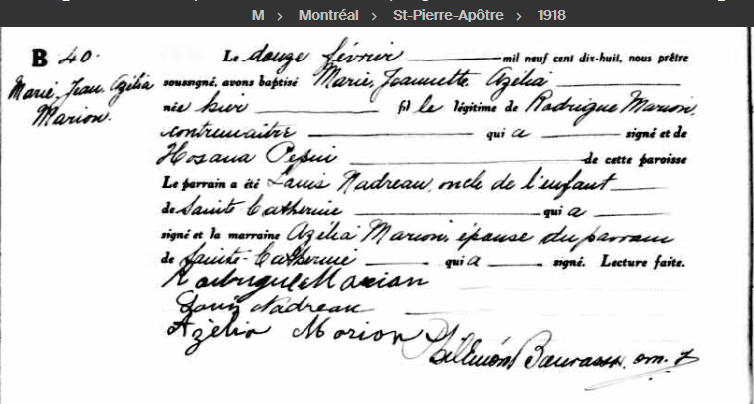 M > Montréal > St-Pierre-Apôtre > 1918
B 40.
Marie, Jean. Azélia
Marion.
Le douze février mil neuf cent dix-huit, nous prêtre
soussigné, avons baptisé Marie, Jeannette, Azélia
née hier fille légitime de Rodrigue Marion,
contremaitre qui a signé et de
Hosana Pepin de cette paroisse
Le parrain a été Louis Nadreau, oncle de l'enfant
de Sainte Catherine qui a
signé et la marraine Azélia Marion, épouse du parrain
de Sainte-Catherine qui a signé. Lecture faite.
Rodrigue Marion
Louis Nadreau
Azélia Marion
Philémon Bourassa, o.m.i.